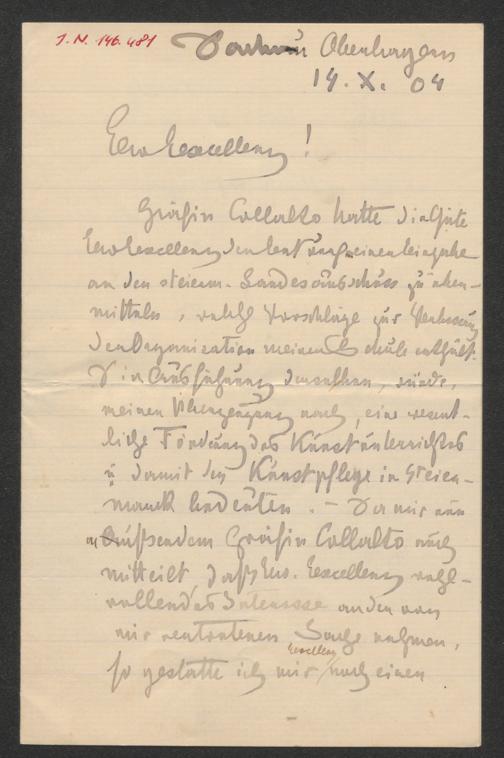 J.N. 146.481
Dachau Oberbayern
14. X. 04
Euer Excellenz!
Gräfin Collalto hatte die Güte
Euer Excellenz den Entwurf einer Eingabe
an den steierm. Landesausschuss zu über-
mitteln, welche Vorschläge zur Verbesserung
der Organisation meiner Schule enthält.
Die Ausführung derselben, würde,
meiner Überzeugung nach, eine wesent-
liche Förderung des Kunstunterrichtes
u. damit der Kunstpflege in Steier-
mark bedeuten. – Da mir nun
außerdem Gräfin Collalto auch
mitteilt, daß Euer Excellenz wohl-
wollendes Interesse an der von
mir vertretenen Sache nehmen,
Excellenz
so gestatte ich mir noch einen